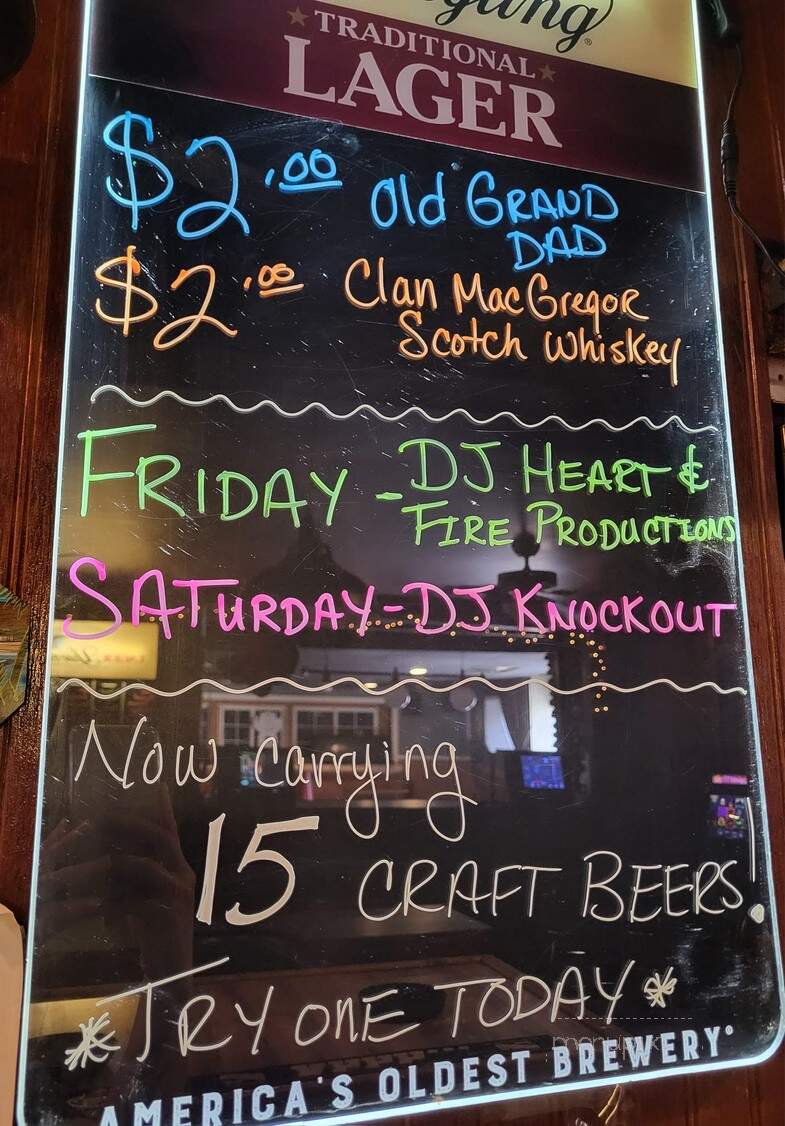 TRADITIONAL
LAGER
$2.00 Old GRAND
DAD
$2.00 Clan MacGregor
Scotch Whiskey
FRIDAY - DJ HEART &
FIRE PRODUCTIONS
SATURDAY - DJ KNOCKOUT
Now carrying
15 CRAFT BEERS!
*TRY ONE TODAY*
menupix
AMERICA'S OLDEST BREWERY®